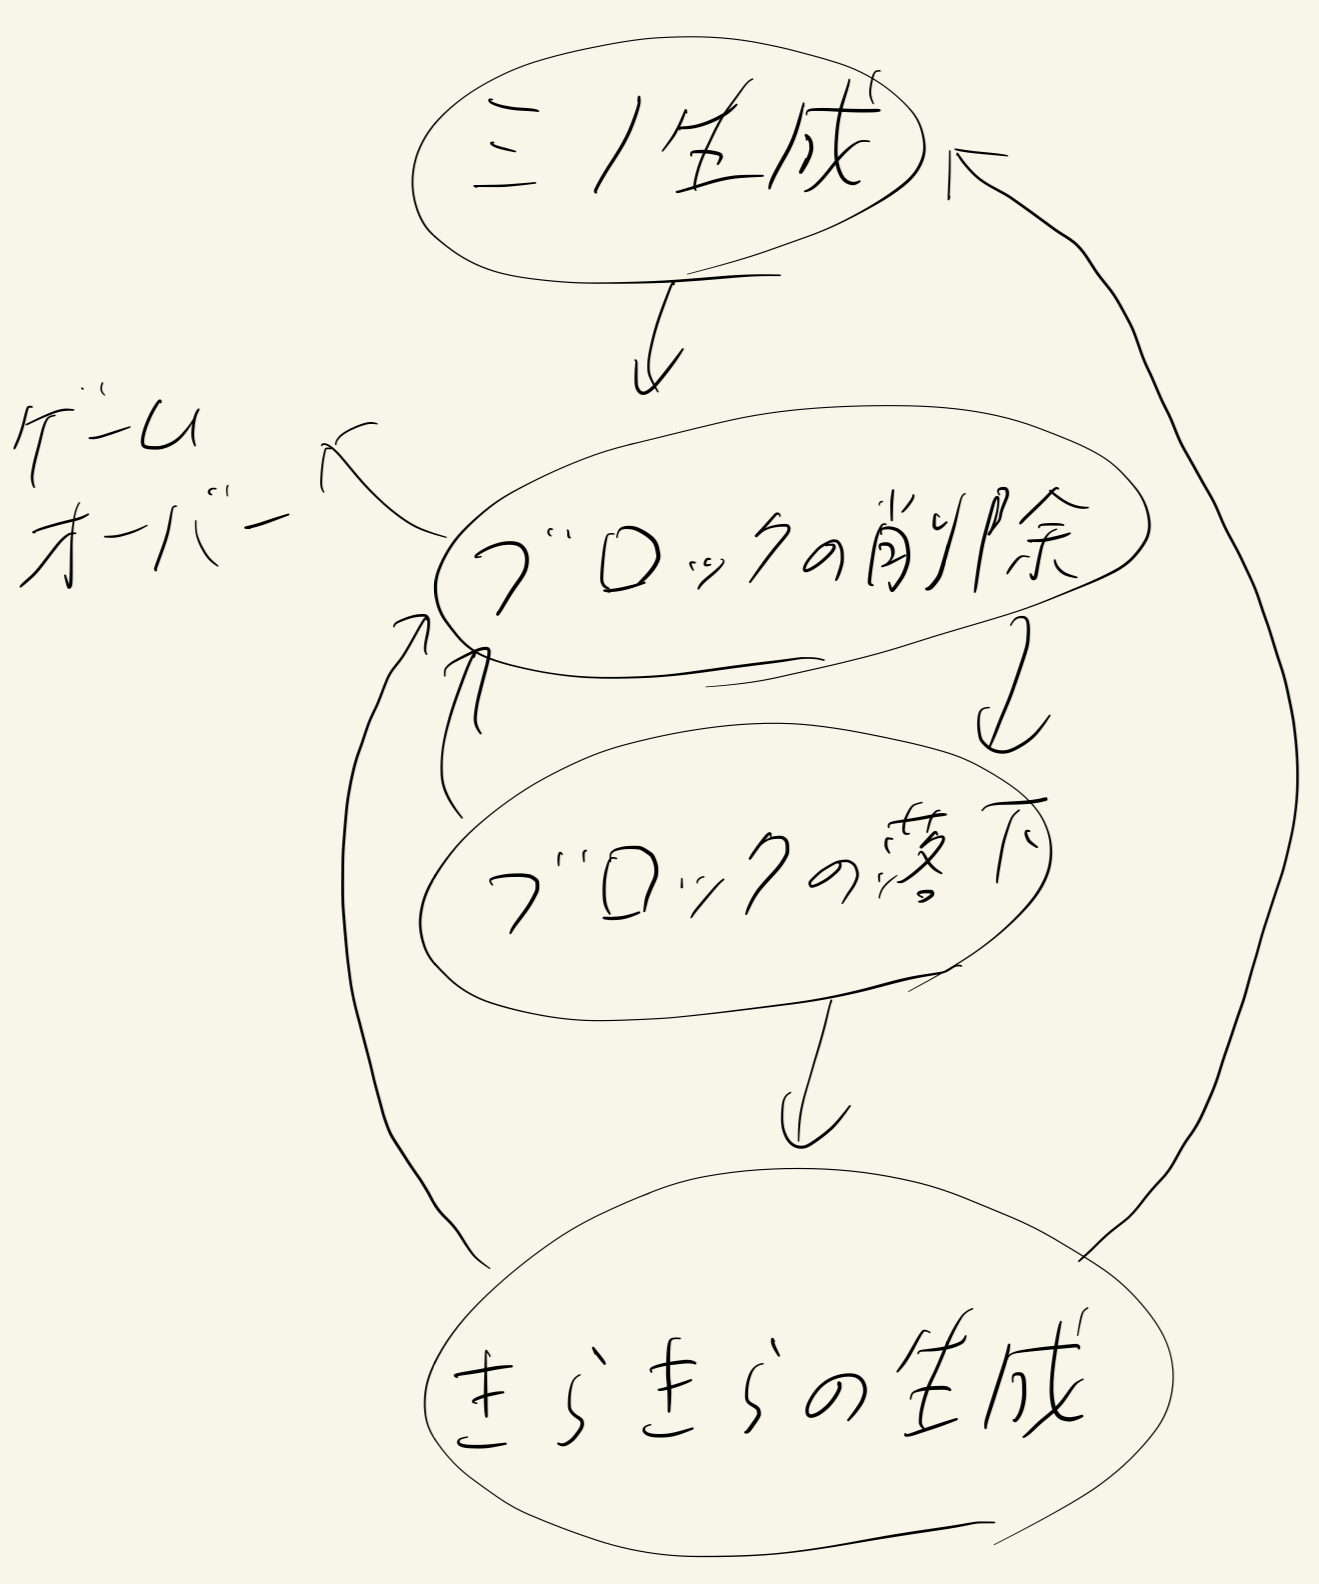 ミノ生成
ゲーム
オーバー
ブロックの削除
ブロックの落下
きらきらの生成